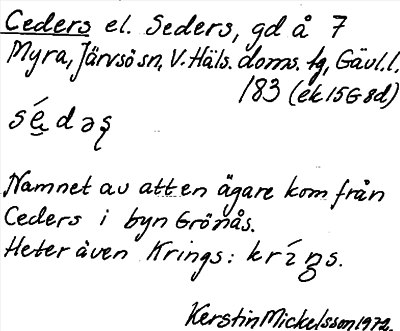 Ceders el. Seders, gd å 7
Myra, Järvsö sn, V. Häls. doms. tg, Gävl.l.
183 (ek 15G 8d)
sé̱dəs̨
Namnet av att en ägare kom från
Ceders i byn Grönås.
Heter även Krings: kríŋs.
Kerstin Mickelsson 1972.